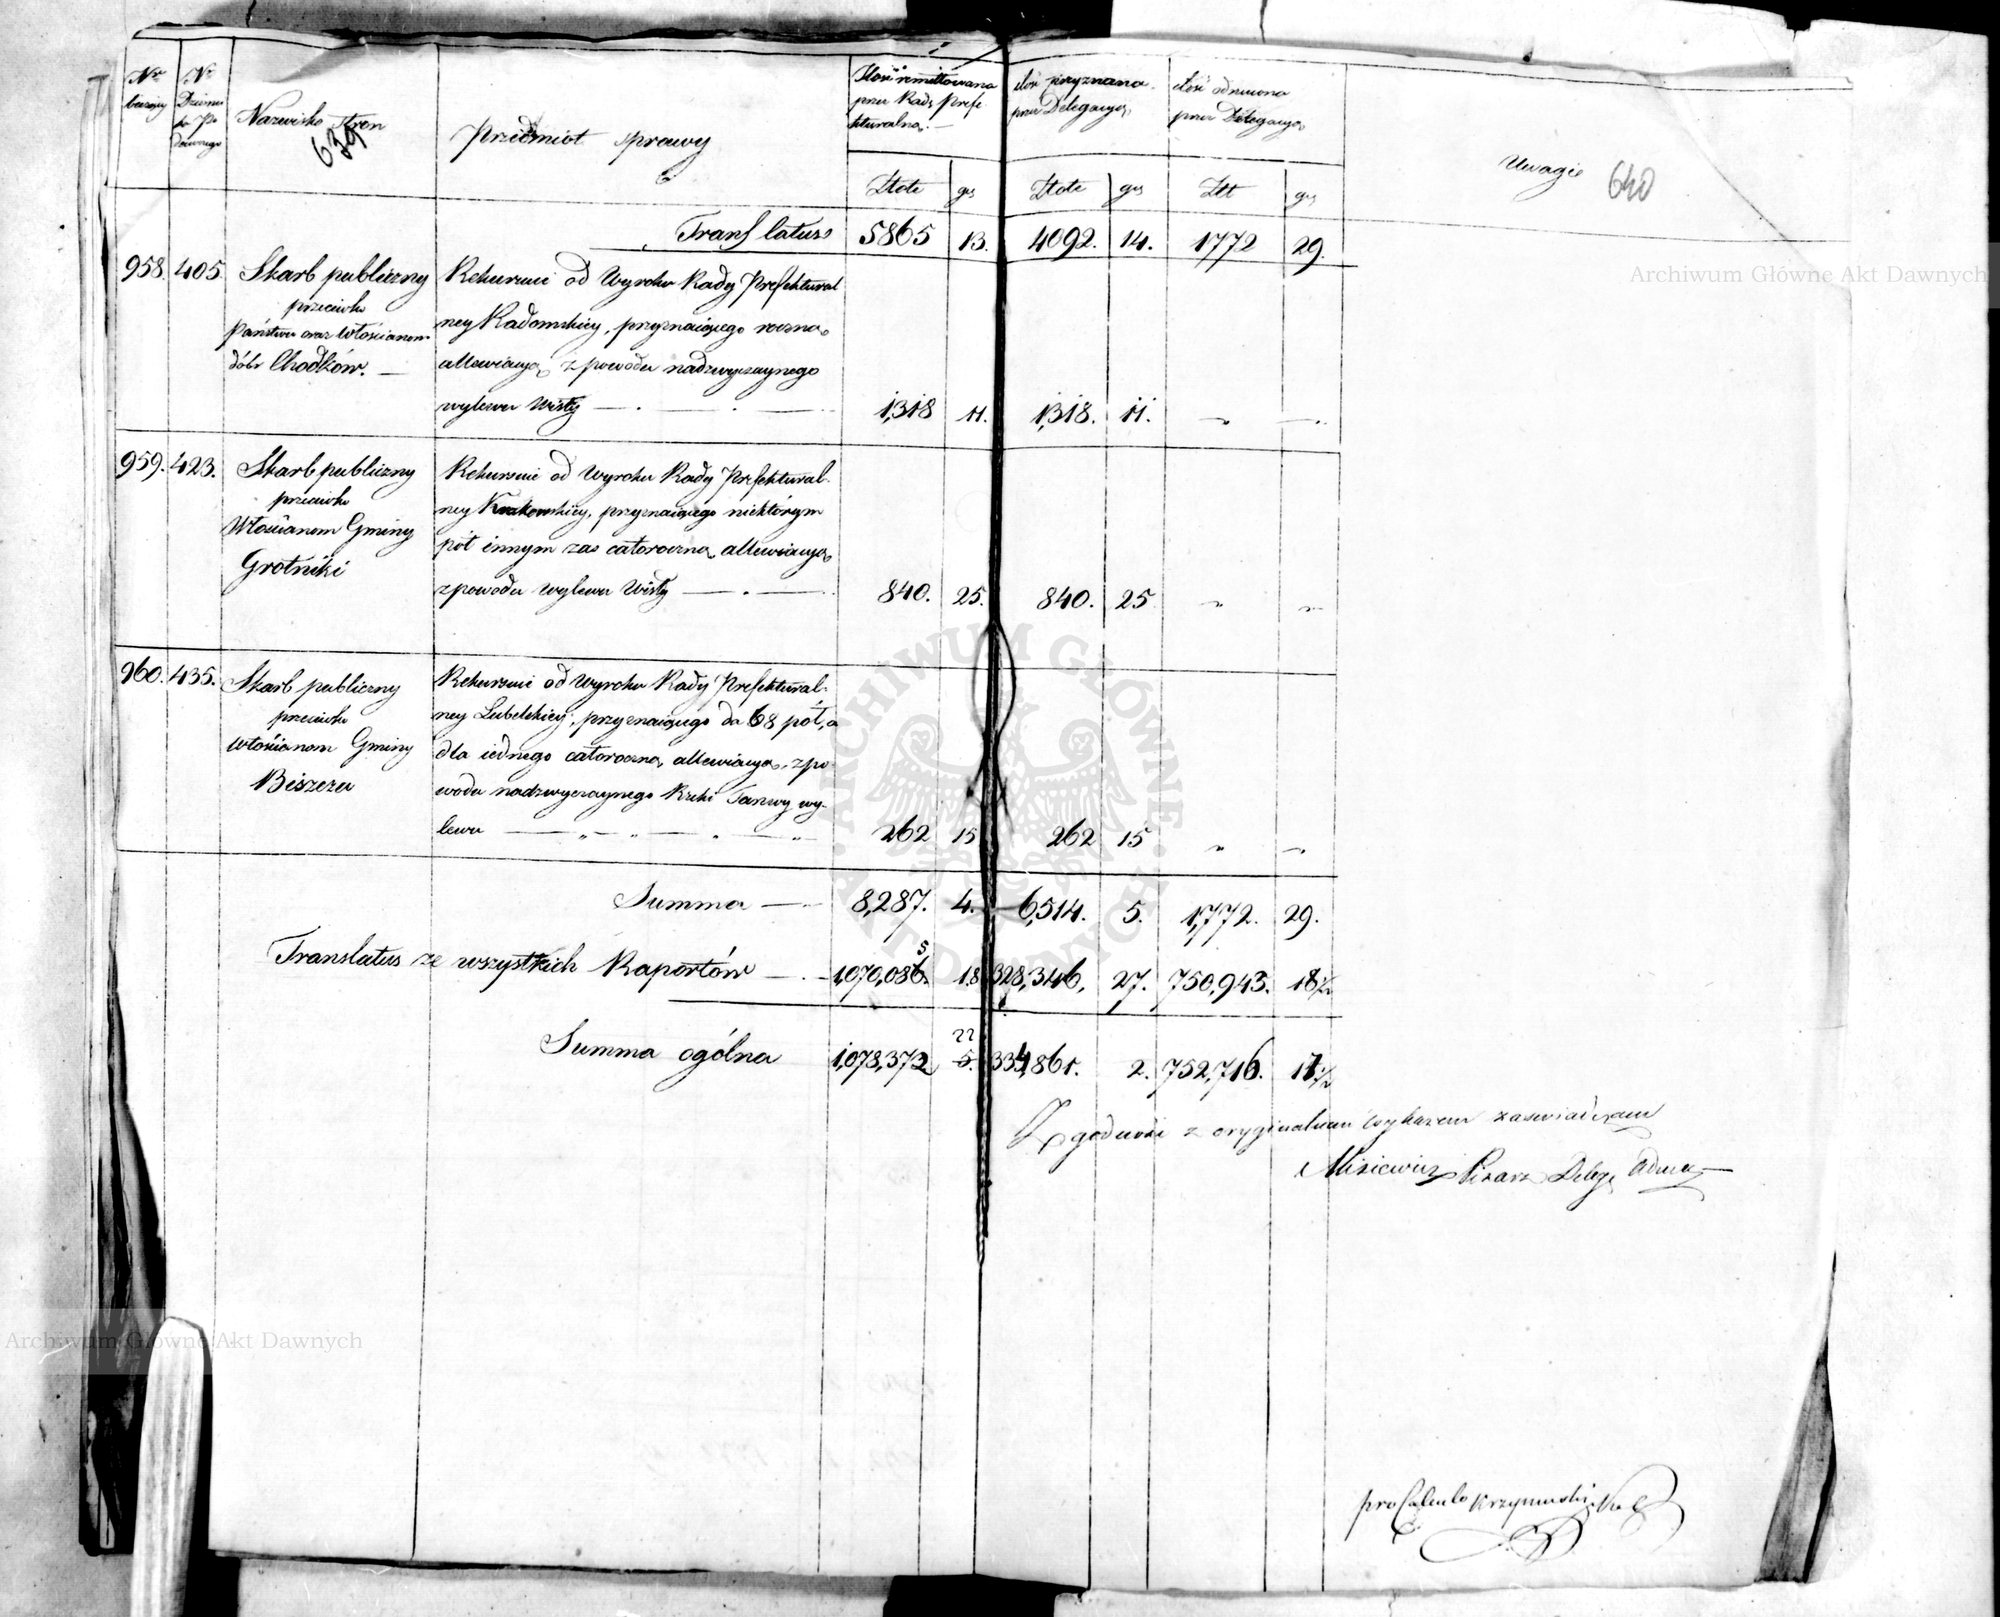 Nr bieżący
Nr Dzienni- ka Po- dawczego
Nazwisko Stron
639
Przedmiot sprawy
Ilość remittowana przez Radę Prefe kturalną.
Ilość przyznana przez Delegacyą
Ilość odmówiona przez Delegacyą
Uwagi
640
Złote gr Złote gr Złt gr
Transf latus 5865 13. 4092. 14. 1772 29.
958. 405. Skarb publiczny
przeciwko
Państwu oraz Włościanom
dóbr Chodków. —
Rekursuie od Wyroku Rady Prefektural
ney Radomskiey, przyznaiącego roczną
allewiacyą z powodu nadzwyczaynego
wylewu Wisły — . — . — 1,318 11. 1,318. 11. „ —
959. 423. Skarb publiczny
przeciwko
Włościanom Gminy
Grotniki
Rekursuie od Wyroku Rady Prefektural-
ney Krakowskiey, przyznaiącego niektórym
pół innym zaś całoroczną allewiacyą
z powodu wylewu Wisły — . — 840. 25. 840. 25 „ „
960. 435. Skarb publiczny
przeciwko
Włościanom Gminy
Biszcza
Rekursuie od Wyroku Rady Prefektural-
ney Lubelskiey, przyznaiącego da 68 pół, a
dla iednego całoroczną allewiacyą, z po-
wodu nadzwyczaynego Rzeki Tanwy wy-
lewu — „ — „ — „ — „ 262 15 262 15 „ „
Summa — 8,287. 4. 6,514. 5. 1,772. 29.
Translatus ze wszystkich Raportów — 1,070,086. 5 18 328,346. 27. 750,943. 18½
Summa ogólna 1,078,372 5. 22 334,861. 2. 752,716. 17½
Zgodność z oryginalnem wykazem zaświadczam
Misiewicz Pisarz Deleg. Adm.
pro Calculo Krzymuski
Archiwum Główne Akt Dawnych
Archiwum Główne Akt Dawnych
ARCHIWUM GŁÓWNE AKT DAWNYCH